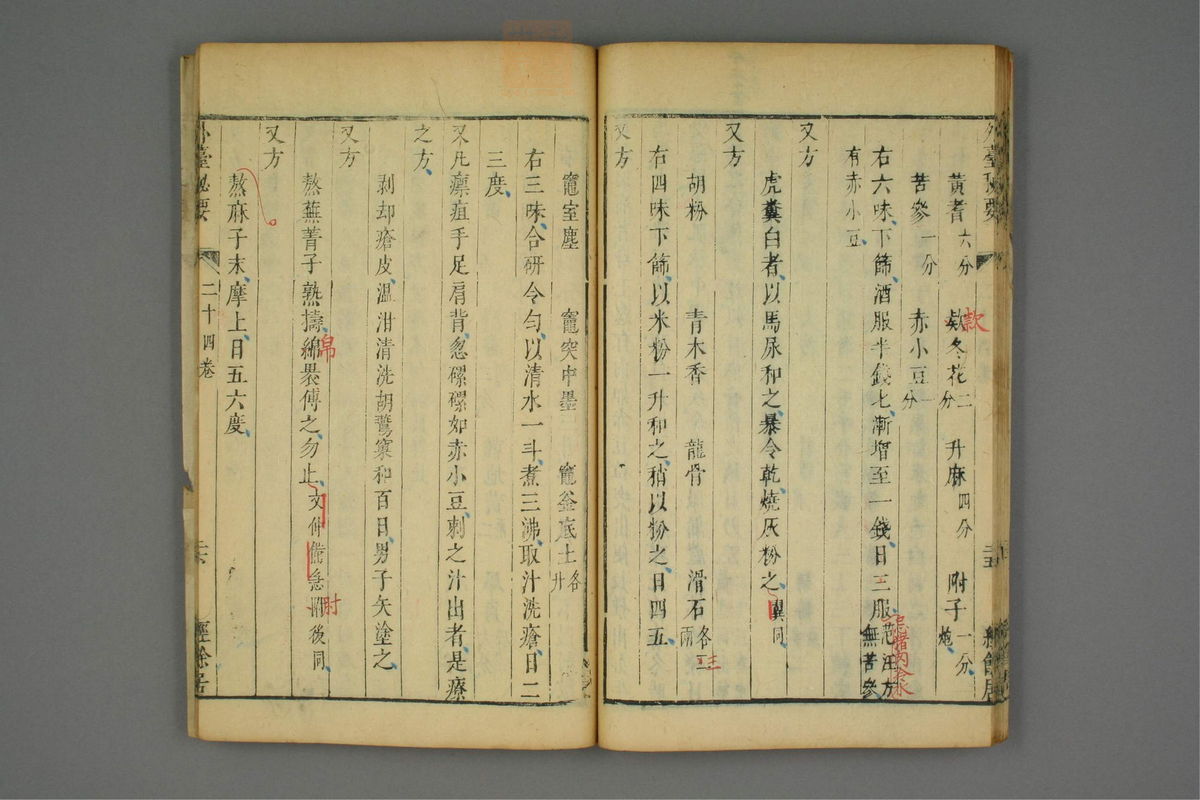 外臺秘要
黃耆六分 欵冬花二分 升麻四分 附子一分炮
款
苦參一分 赤小豆一分
右六味下篩酒服半錢匕漸增至一錢日三服范汪方無苦參
有赤小豆
又方
虎糞白者以馬尿和之暴令乾燒灰粉之翼同
又方
胡粉 青木香 龍骨 滑石各三兩
右四味下篩以米粉一升和之稍以粉之日四五
又方
竈室塵 竈突中墨 竈釜底土各一升
右三味合研令勻以清水一斗煮三沸取汁洗瘡日二
三度
又凡瘭疽手足肩背忽磥磥如赤小豆剥之汁出者是療
之方
剥却瘡皮温泔清洗胡鷰窠和百日男子矢塗之
又方
熬蕪菁子熟擣綿褁傅之勿止文仲備急肘後同
綿
肘
又方
熬麻子末摩上日五六度
外臺秘要 二十四卷 二十六 經餘居